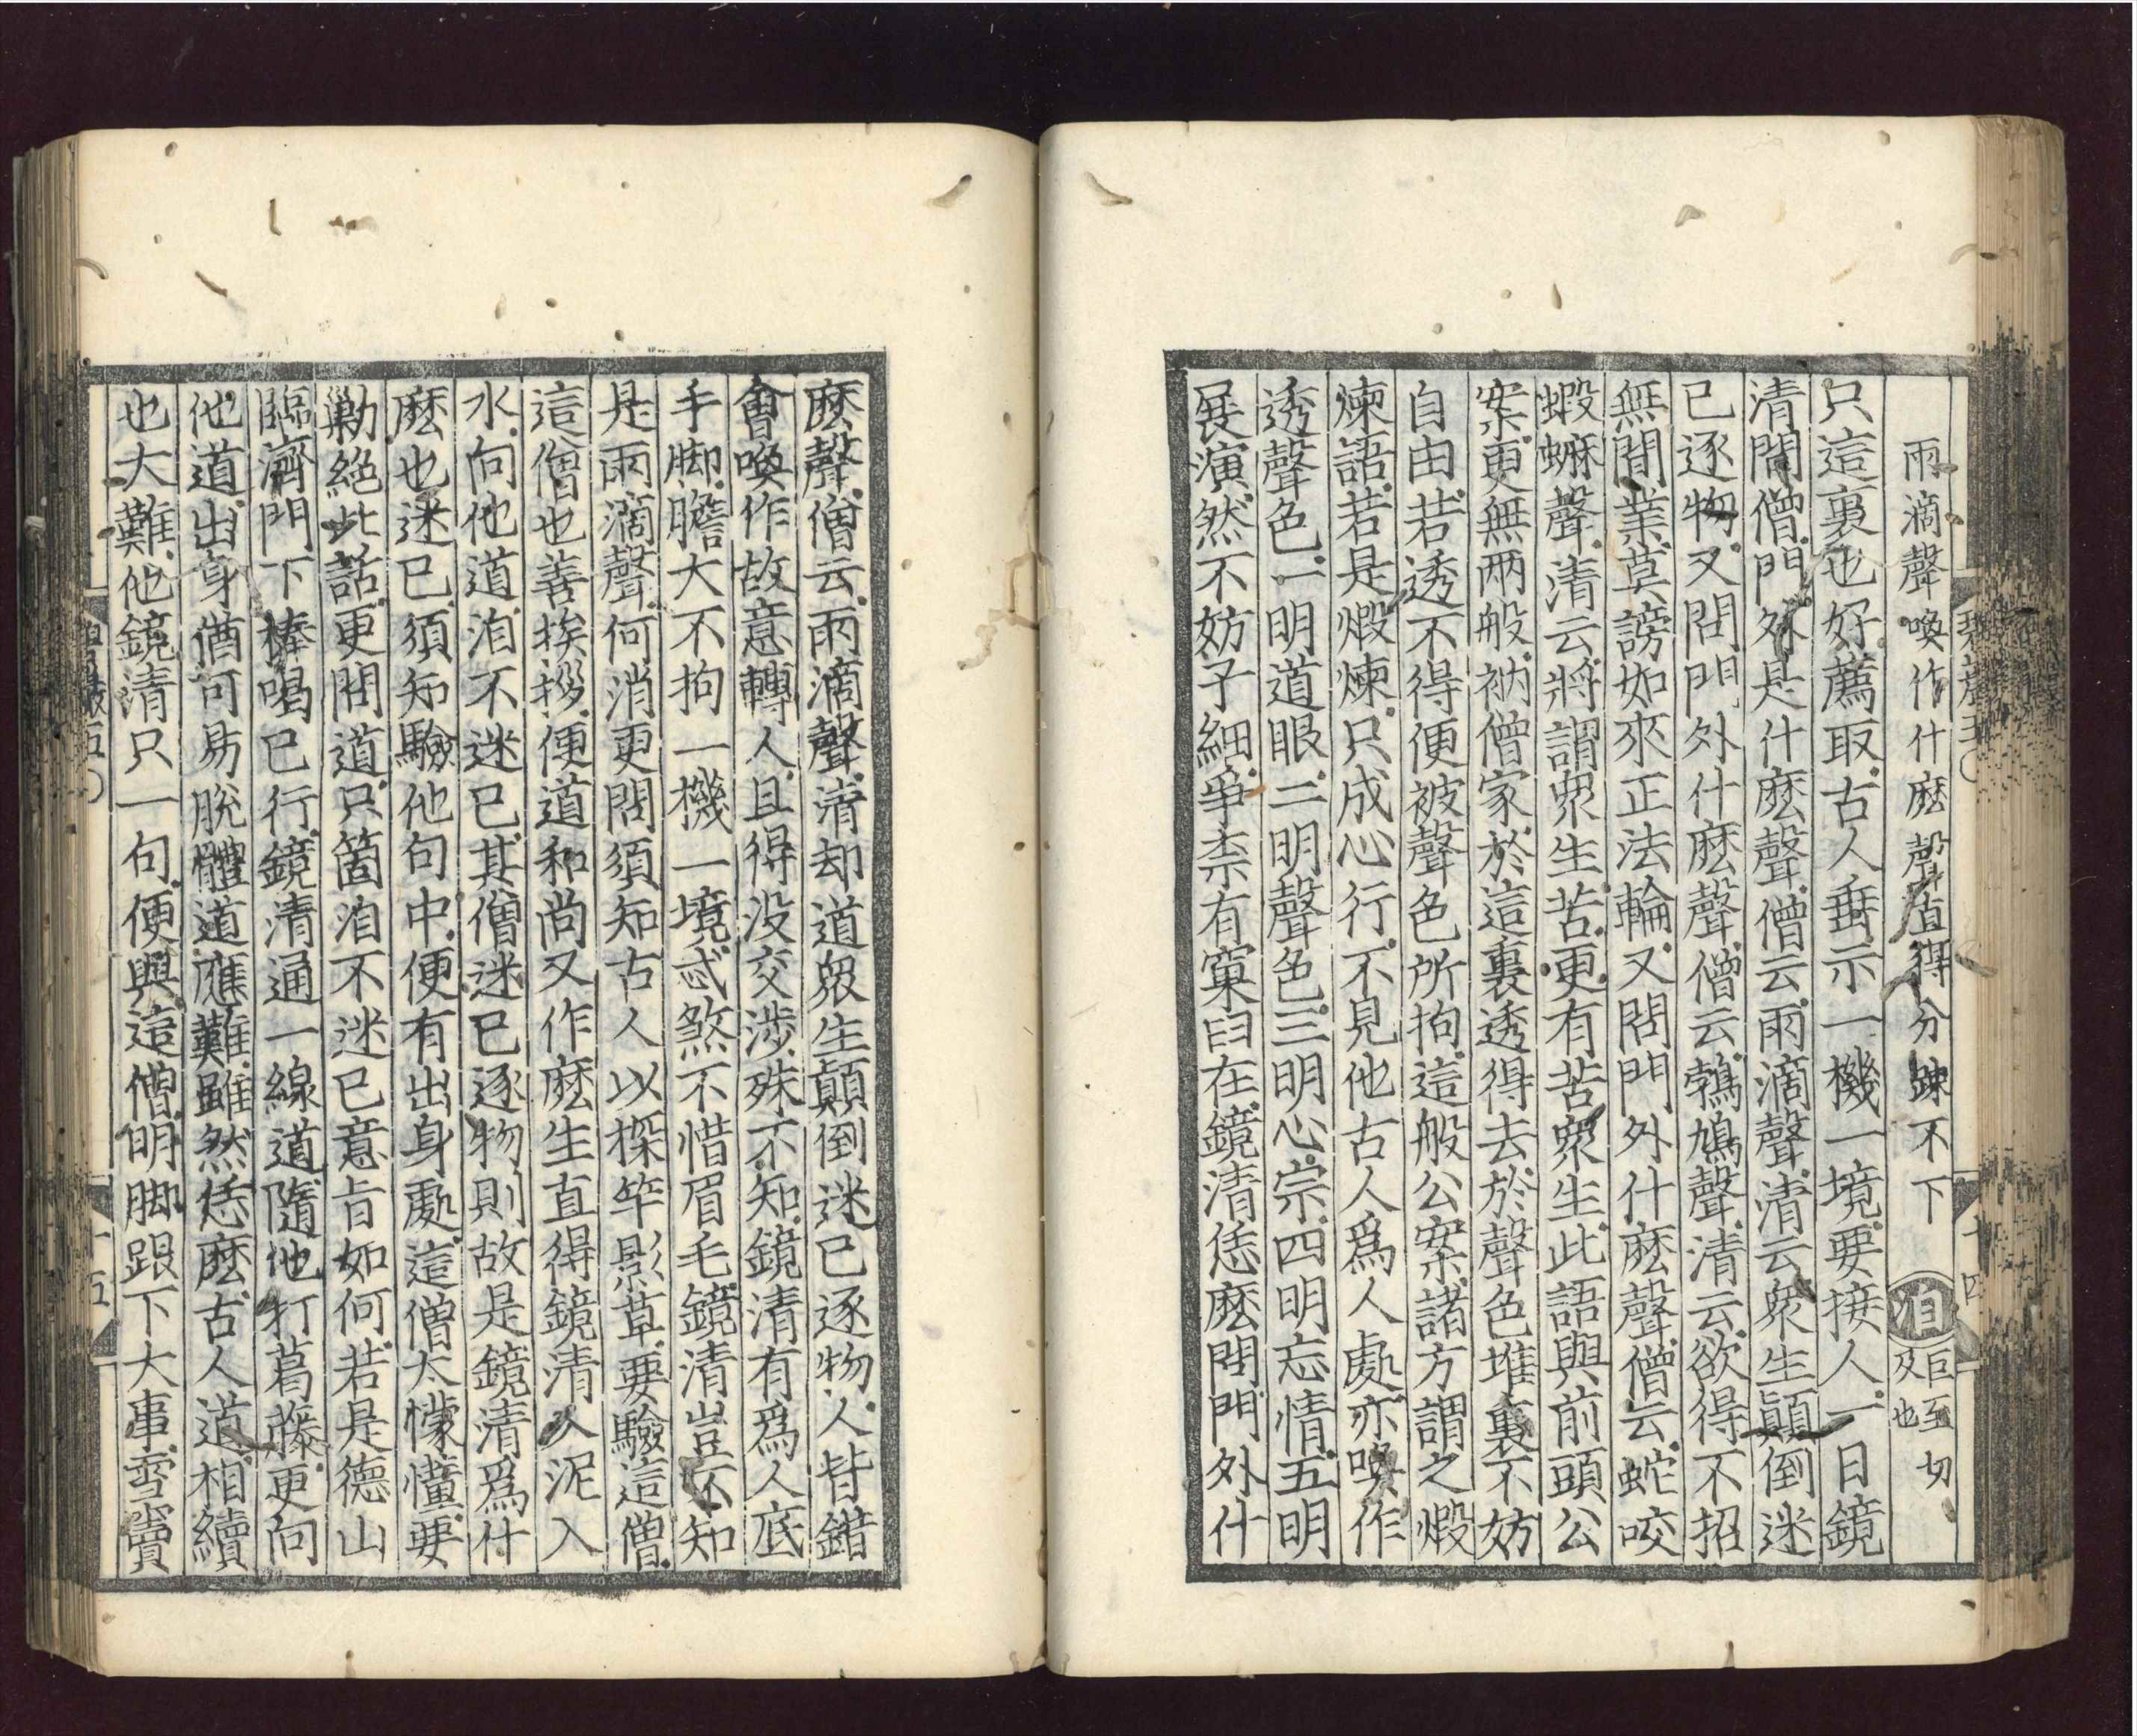 雨滴聲喚作什麼聲直得分踈不下 洎 巨至切及也
只這裏也好薦取古人垂示一機一境要接人一日鏡
清問僧門外是什麼聲僧云雨滴聲清云衆生顛倒迷
已逐物又問門外什麼聲僧云鵓鳩聲清云欲得不招
無間業莫謗如來正法輪又問門外什麼聲僧云蛇咬
蝦蟆聲清云將謂衆生苦更有苦衆生此語與前頭公
案更無兩般衲僧家於這裏透得去於聲色堆裏不妨
自由若透不得便被聲色所拘這般公案諸方謂之煆
煉語若是煆煉只成心行不見他古人爲人處亦喚作
透聲色一明道眼二明聲色三明心宗四明忘情五明
展演然不妨子細爭柰有窠臼在鏡清恁麼問門外什
十四
麼聲僧云雨滴聲清却道衆生顛倒迷已逐物人皆錯
會喚作故意轉人且得没交涉殊不知鏡清有爲人底
手脚膽大不拘一機一境忒煞不惜眉毛鏡清豈不知
是雨滴聲何消更問須知古人以探竿影草要驗這僧
這僧也善挨拶便道和尚又作麼生直得鏡清入泥入
水向他道洎不迷已其僧迷已逐物則故是鏡清爲什
麼也迷已須知驗他句中便有出身處這僧太懞懂要
勦絕此話更問道只箇洎不迷已意旨如何若是德山
臨濟門下棒喝已行鏡清通一線道隨他打葛藤更向
他道出身猶可易脫體道應難雖然恁麼古人道相續
也大難他鏡清只一句便與這僧明脚跟下大事雪竇